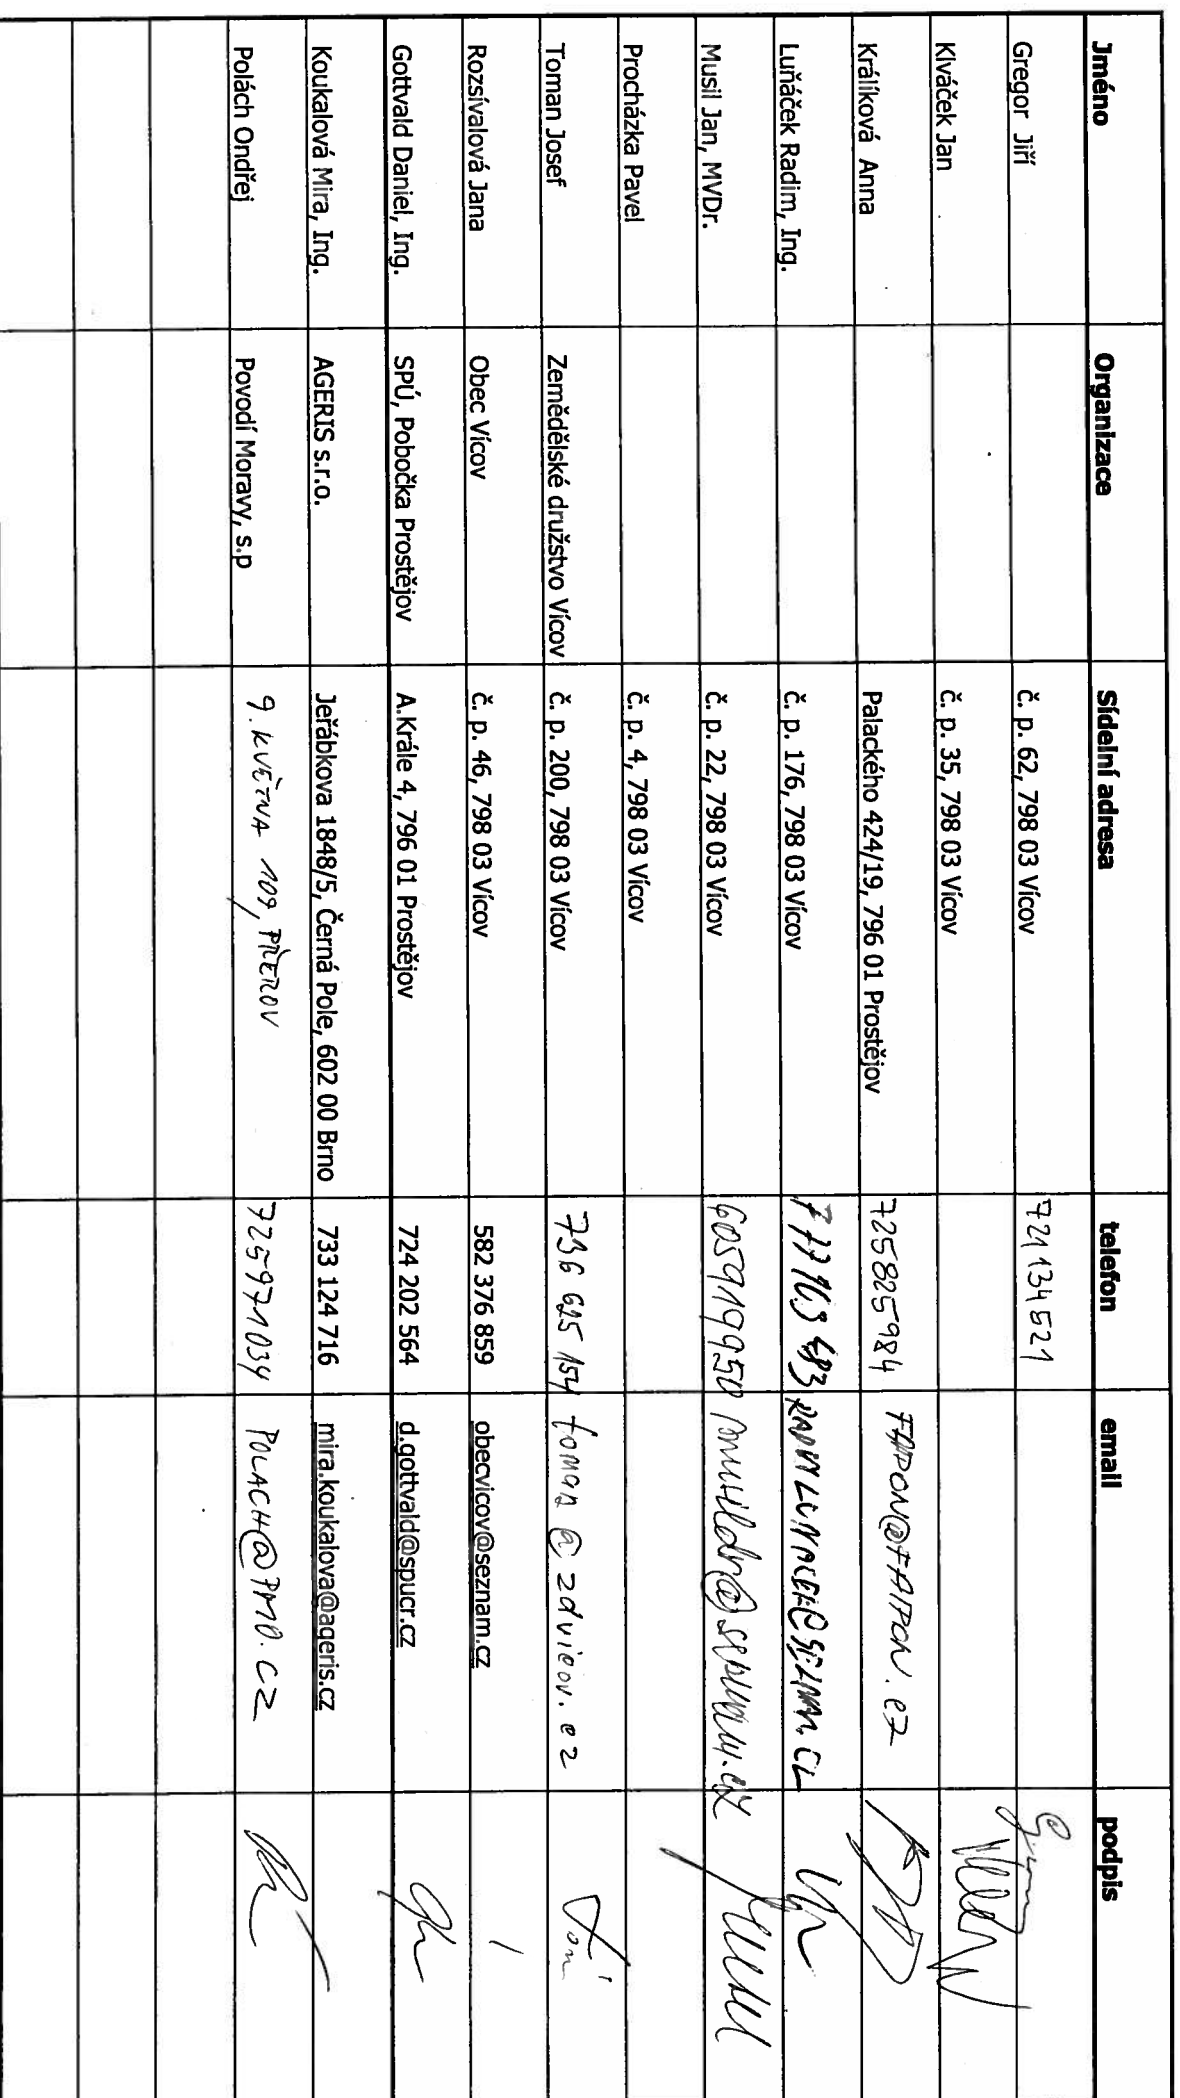 Jméno Organizace Sídelní adresa telefon email podpis
Gregor Jiří č. p. 62, 798 03 Vícov 721134521
Klváček Jan č. p. 35, 798 03 Vícov
Králíková Anna Palackého 424/19, 796 01 Prostějov 725825984
Luňáček Radim, Ing. č. p. 176, 798 03 Vícov
Musil Jan, MVDr. č. p. 22, 798 03 Vícov 605919950
Procházka Pavel č. p. 4, 798 03 Vícov
Toman Josef Zemědělské družstvo Vícov č. p. 200, 798 03 Vícov 736 625 154 toman@zdvicov.cz
Rozsívalová Jana Obec Vícov č. p. 46, 798 03 Vícov 582 376 859 obecvicov@seznam.cz
Gottvald Daniel, Ing. SPÚ, Pobočka Prostějov A.Krále 4, 796 01 Prostějov 724 202 564 d.gottvald@spucr.cz
Koukalová Mira, Ing. AGERIS s.r.o. Jeřábkova 1848/5, Černá Pole, 602 00 Brno 733 124 716 mira.koukalova@ageris.cz
Polách Ondřej Povodí Moravy, s.p 9. KVĚTNA 109, PŘEROV 725971034 POLACH@PMO.CZ